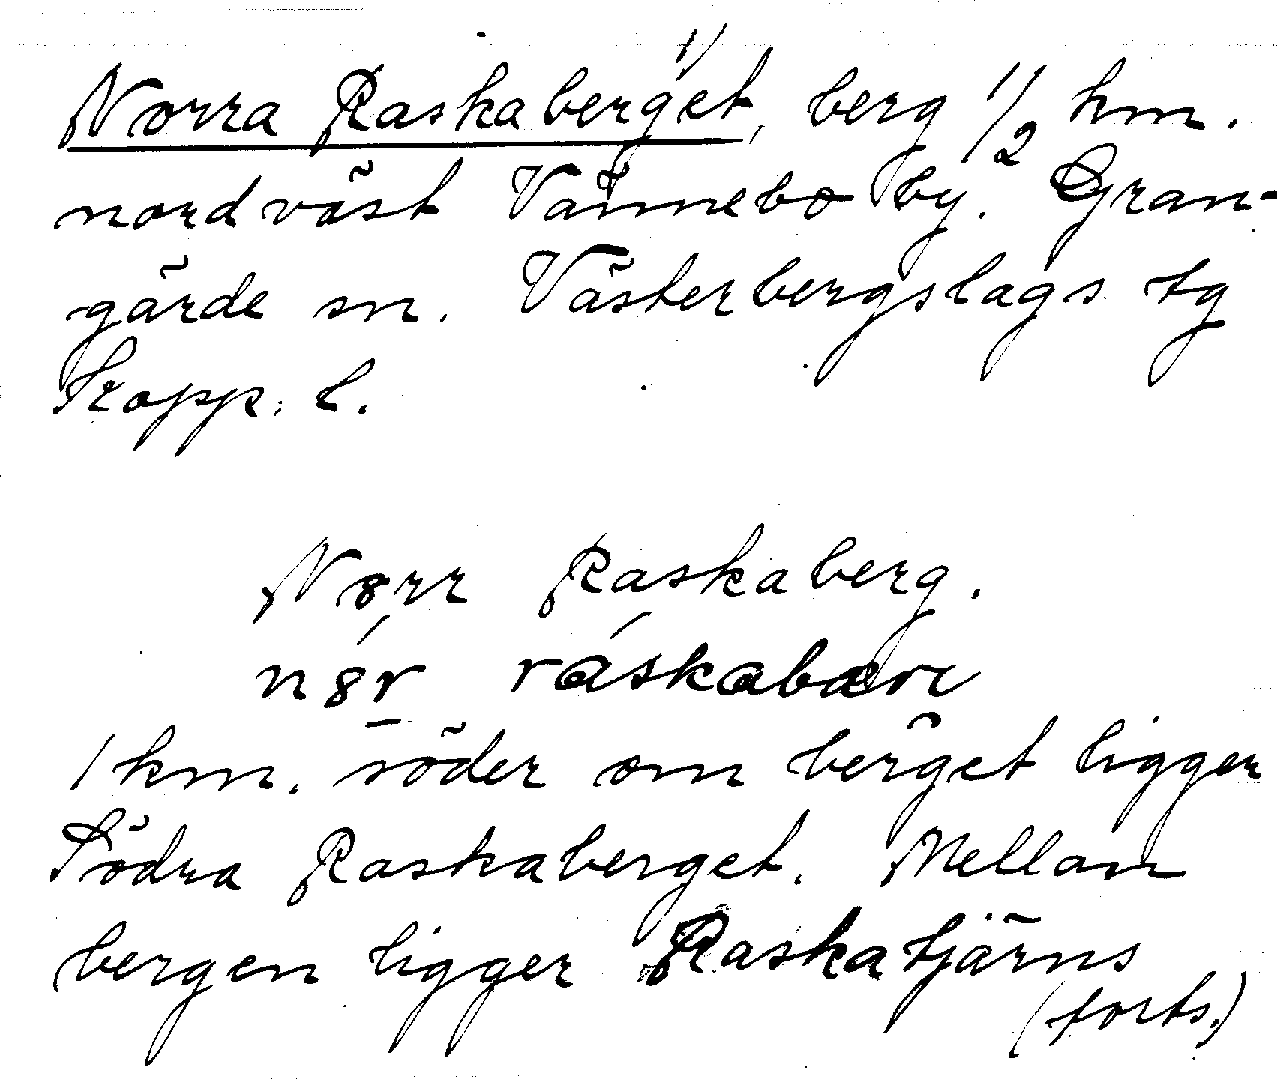 Norra Raskaberget, ¹⁾ berg 1/2 km.
nordväst Vännebo by. Gran-
gärde sn. Västerbergslags tg
Kopp. l.
Nørr Raskaberg.
n8r ráskabær
1 km. söder om berget ligger
Södra Raskaberget. Mellan
bergen ligger Raskatjärns
(forts.)